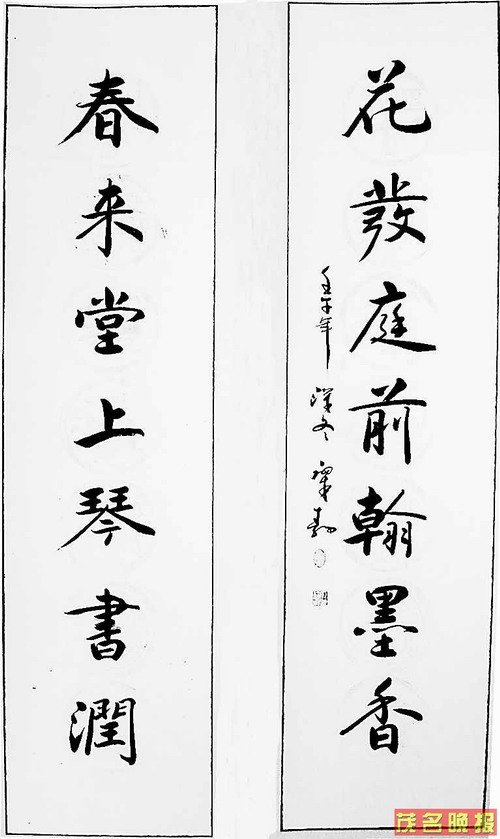 花發庭前翰墨香
壬午年 深冬 梁勳
春来堂上琴書潤
茂名晚报